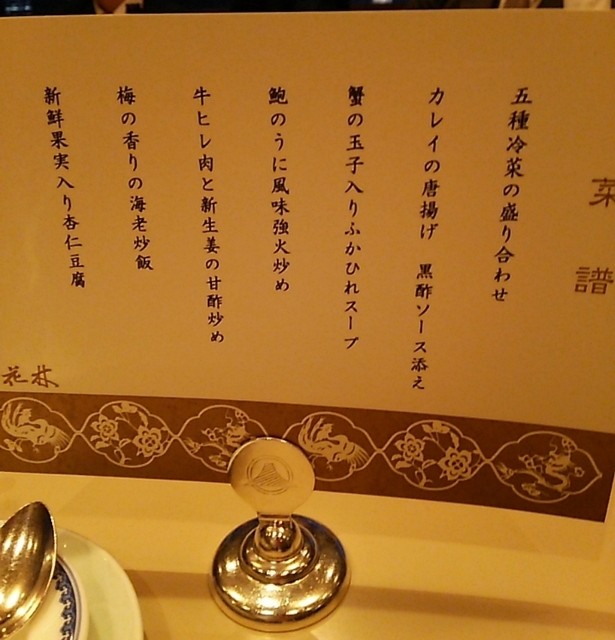 菜譜
五種冷菜の盛り合わせ
カレイの唐揚げ 黒酢ソース添え
蟹の玉子入りふかひれスープ
鮑のうに風味強火炒め
牛ヒレ肉と新生姜の甘酢炒め
梅の香りの海老炒飯
新鮮果実入り杏仁豆腐
花林